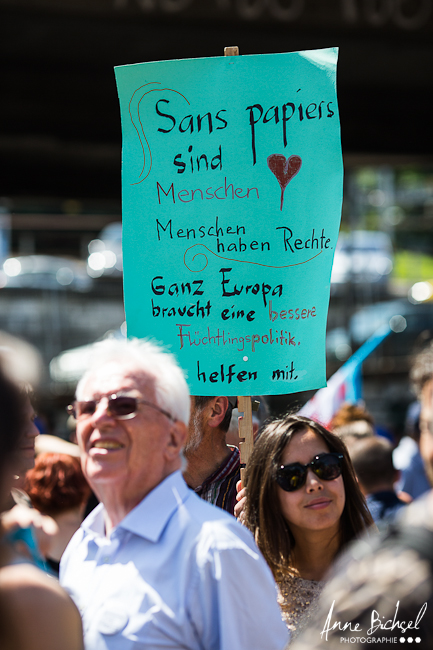 Sans papiers
sind
Menschen
Menschen
haben Rechte.
Ganz Europa
braucht eine bessere
Flüchtlingspolitik.
helfen mit.
Anne Bichsel
PHOTOGRAPHIE